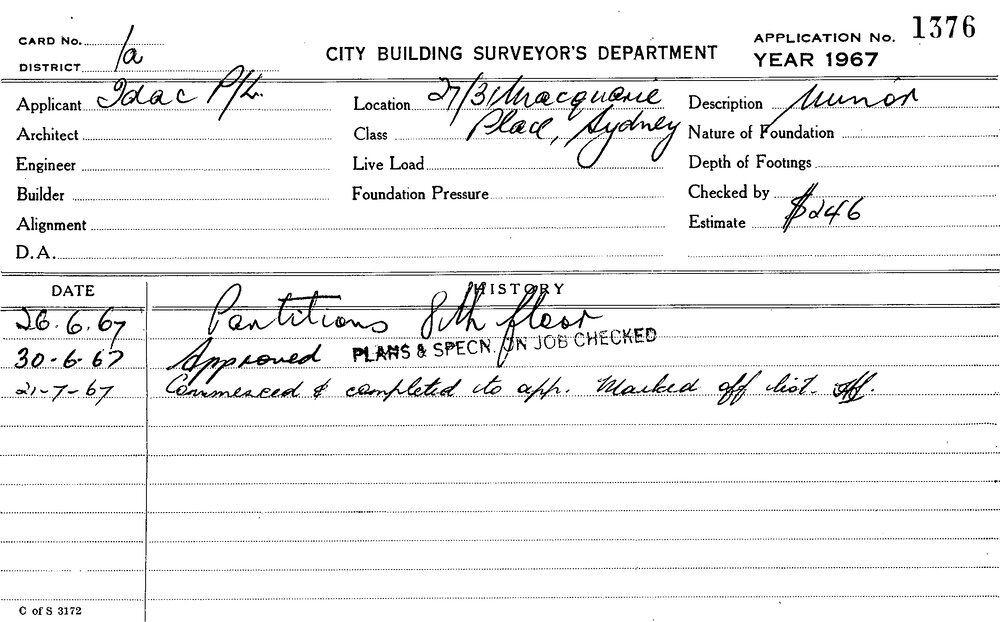 CARD No.
DISTRICT 1a
CITY BUILDING SURVEYOR'S DEPARTMENT
APPLICATION No. 1376
YEAR 1967
Applicant Idac P/L.
Location 27/31 Macquarie
Place, Sydney
Description Minor
Architect
Class
Nature of Foundation
Engineer
Live Load
Depth of Footings
Builder
Foundation Pressure
Checked by
Alignment
Estimate $246
D.A.
DATE
HISTORY
26.6.67 Partitions 8th floor
30-6-67 Approved PLANS & SPECN. ON JOB CHECKED
21-7-67 Commenced & completed to app. Marked off list.
C of S 3172